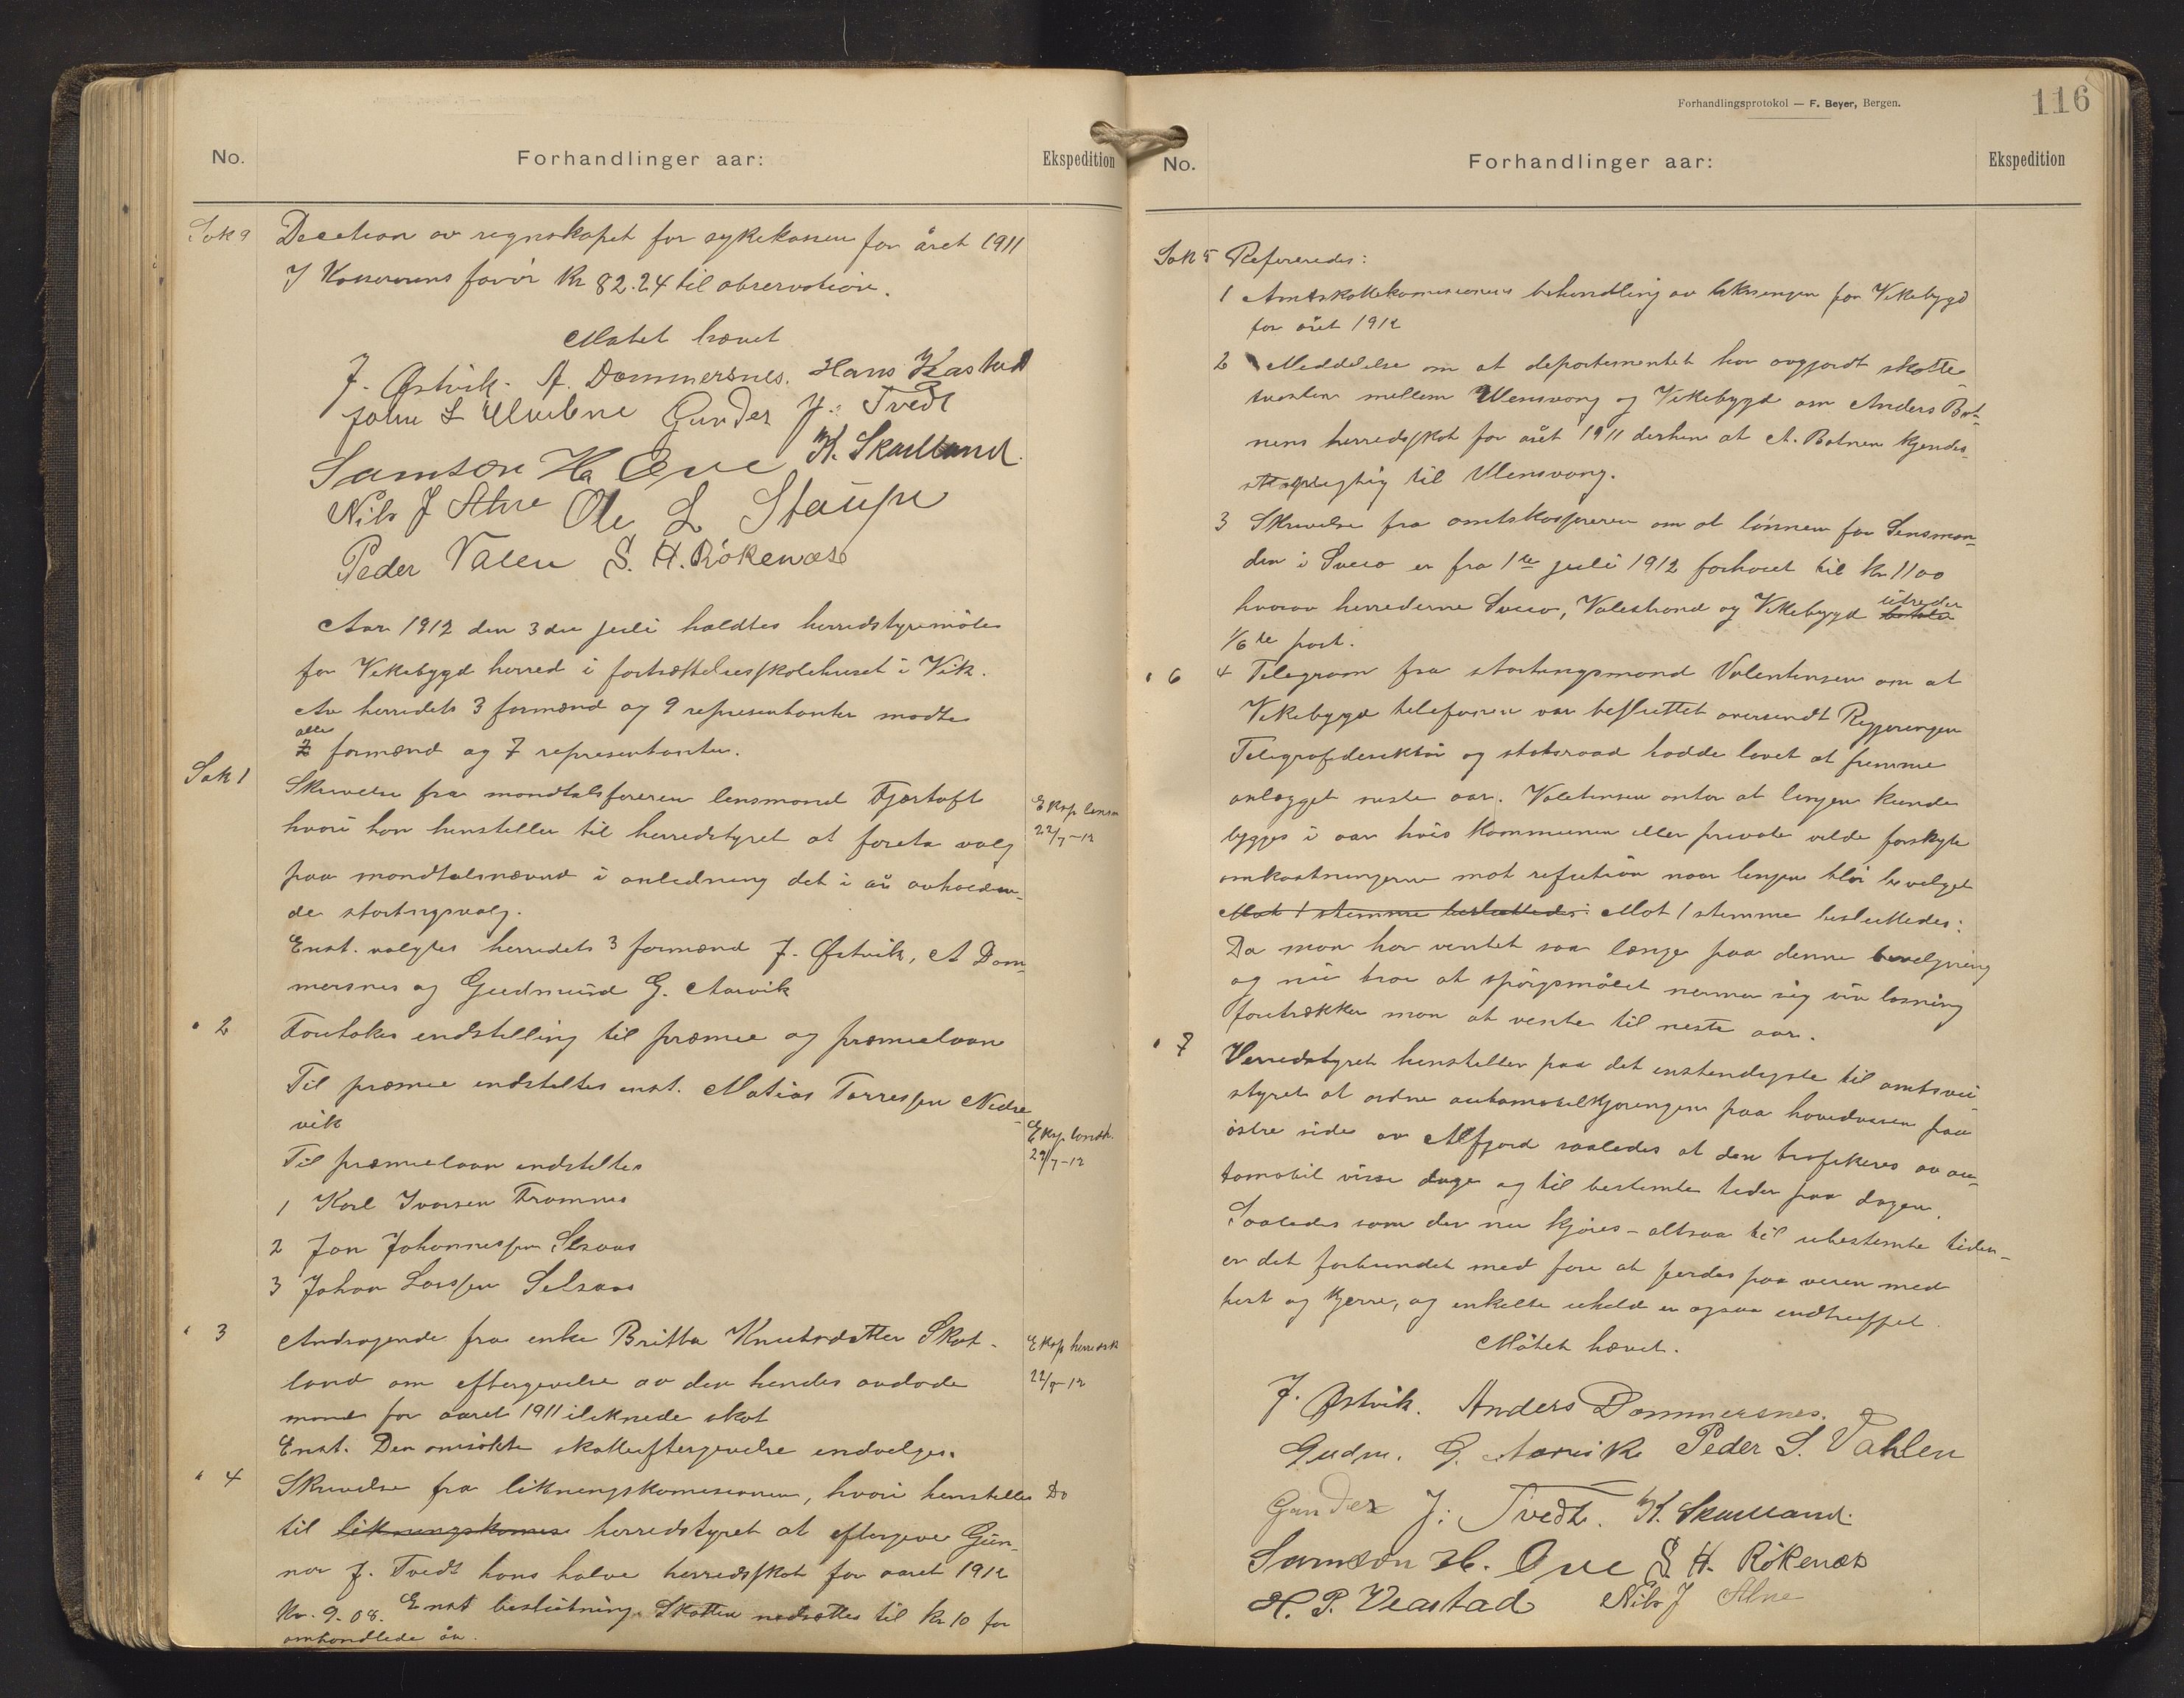 No.
Forhandlinger aar:
Ekspedition
Sak 9
Decition av regnskapet for sykekassen for året 1911
I Kassererens favör Kr 82.24 til observation.
Mötet hævet
J. Østvik. A. Dommersnes. Hans
John L Gunder J. Tvedt
Samson H. Øve K. Skartland.
Nils J Alne Ole L Staupe
Peder Valen S. H. Rökenæs
Aar 1912 den 3die juli holdtes herredstyremöte
for Vikebygd herred i fortsættelsesskolehuset i Vik.
Av herredets 3 formænd og 9 representanter mödte
alle
2 formænd og 7 representanter.
Sak 1
Skrivelse fra mandtalsföreren lensmand Fjærtoft
hvori han henstiller til herredstyret at foreta valg
paa mandtalsnævnd i anledning det i år avholden-
de stortingsvalg.
Enst. valgtes herredets 3 formænd J. Østvik, A Dom-
mersnes og Gudmund G. Aarvik
Eksp lensm
22/7-12
" 2
Foretokes indstilling til præmie og præmielaan
Til præmie indstiltes enst. Matias Torressen Nedre
vik
Til præmielaan indstiltes
1 Karl Ivarsen Framnes
2 Jan Johannessen
3 Johan Larssen Selsaas
Eksp. landh.
29/7-12
" 3
Andragende fra enke Britta Knutsdatter Skart-
land om eftergivelse av den hendes avdöde
mand for aaret 1911 iliknede skat
Enst. Den omsökte skatteeftergivelse indvilges.
Eksp herredsk
22/7-12
" 4
Skrivelse fra likningskomisionen, hvori henstilles
Do
til likningskomisi herredstyret at eftergive Gun-
nar J. Tvedt hans halve herredsskat for aaret 1912
Kr. 9.08. Enst beslutning. Skatten nedsættes til kr 10 for
omhandlede år.
Forhandlingsprotokol — F. Beyer, Bergen.
116
No.
Forhandlinger aar:
Ekspedition
Sak 5 Refereredes:
1 Amtskattekomisionens behandling av likningen for Vikebygd
for året 1912
2 Meddelelse om at departementet har avgjordt skatte-
tvisten mellem Ulensvang og Vikebygd om Anders Bot-
nens herredsskat for året 1911 derhen at A. Botnen kjendes
skatpligtig til Ulensvang.
3 Skrivelse fra amtskassereren om at lönnen for Lensman-
den i Sveio er fra 1ste juli 1912 forhöiet til kr 1100
hvorav herrederne Sveio, Valestrand og Vikebygd utreder
1/6te part.
" 6
4 Telegram fra stortingsmand Valentinsen om at
Vikebygd telefonen var besluttet oversendt Regjeringen
Telegrafdirektör og statsraad hadde lovet at fremme
anlægget neste aar. Valentinsen antar at linjen kunde
bygges i aar hvis Kommunen eller private vilde forskyte
omkostningerne mot refution naar linjen blir bevilget
Mot 1 stemme besluttedes: Mot 1 stemme besluttedes:
Da man har ventet saa længe paa denne bevilgning
og nu tror at spörgsmålet nermer sig sin lösning
foretrækker man at vente til neste aar.
" 7
Herredstyret henstiller paa det instendigste til amtsvei-
styret at ordne automobilkjöringen paa hovedveien paa
östre side av Alfjord saaledes at den trafikeres av au-
tomobil visse dage og til bestemte tider paa dagen.
Saaledes som der nu kjöres - altsaa til ubestemte tider -
er det forbundet med fare at ferdes paa veien med
hest og kjerre, og enkelte uheld er ogsaa indtruffet.
Mötet hævet.
J. Østvik. Anders Dommersnes.
Gudm. G. Aarvik Peder S. Vahlen
Gunder J. Tvedt. K. Skartland.
Samson H. Øve S. H. Rökenæs
H. P. Veastad Nils J Alne